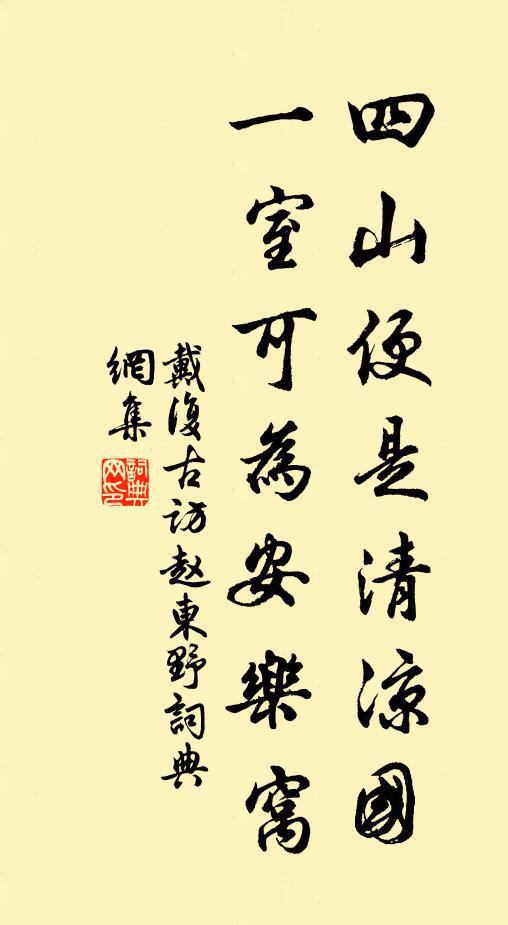 四山便是清涼國
一室可為安樂窩
戴復古訪赵東野詞典
網集
詞典
网印